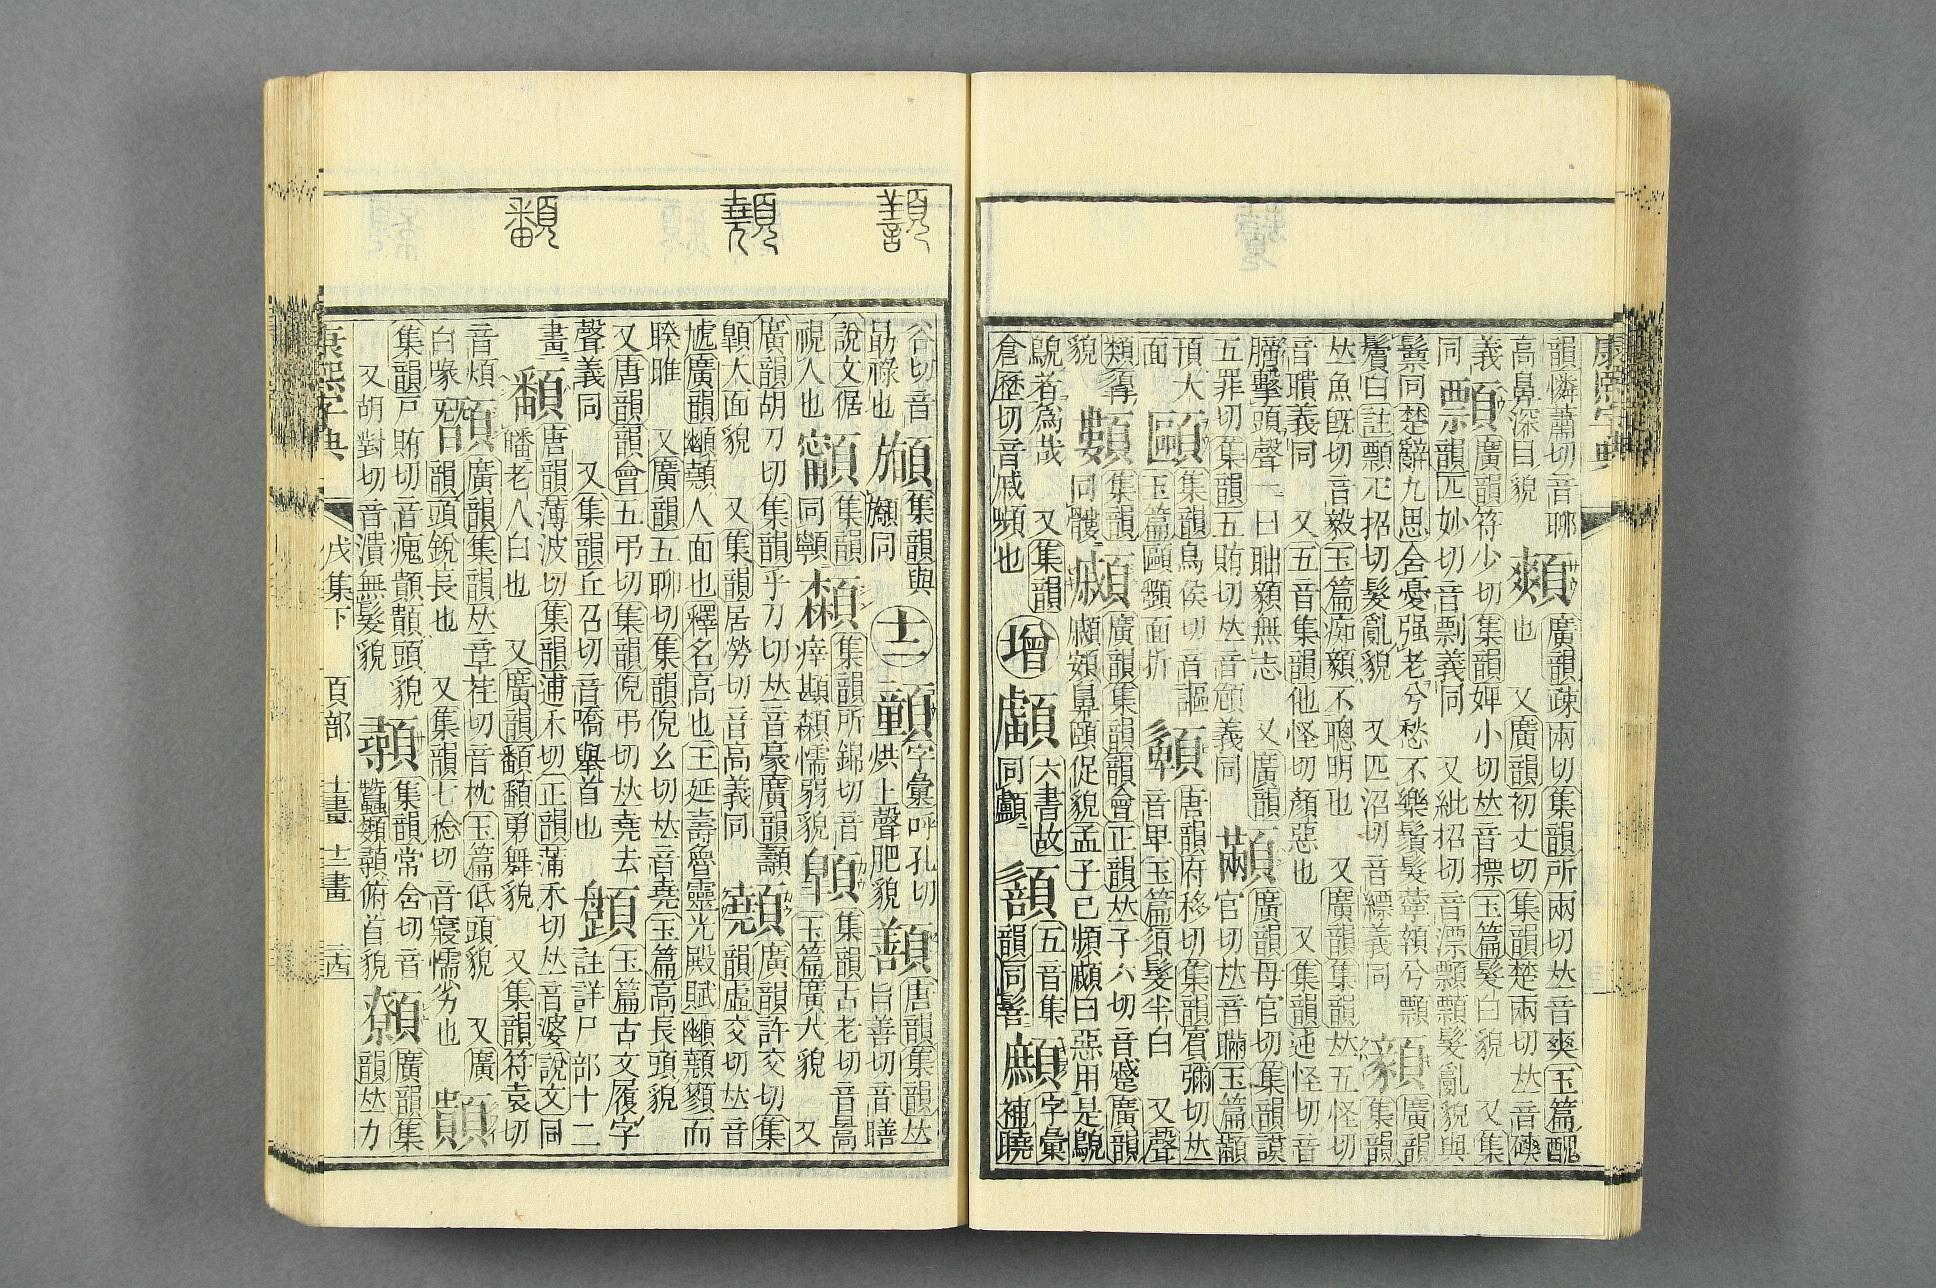 康熙字典
韻憐蕭切音聊
䫪
廣韻疎兩切集韻所兩切𠀤音爽玉篇醜
高鼻深目貌
也 又廣韻初丈切集韻楚兩切𠀤音磢
義
顠
廣韻符少切集韻婢小切𠀤音摽玉篇髮白貌 又集
同
韻匹妙切音剽義同 又紕招切音漂顠顠髮亂貌與
鬕同楚辭九思舍憂强老兮愁不樂鬚髮薴顇兮顠
鬢白註顠匹招切髮亂貌 又匹沼切音縹義同
廣韻
集韻
𠀤魚旣切音毅玉篇痴顡不聰明也 又廣韻集韻𠀤五怪切
音聵義同 又五音集韻他怪切顏惡也 又集韻迍怪切音
膪擊頭聲一曰聉顡無志 又廣韻
五罪切集韻五賄切𠀤音頠義同
顢
廣韻母官切集韻謨
官切𠀤音瞞玉篇顢
頇大
面
集韻烏侯切音謳
玉篇䫜顙面折
唐韻府移切集韻賔彌切𠀤
音卑玉篇須髮半白 又聲
類
貌
集韻
同髏
顣
廣韻集韻韻會正韻𠀤子六切音蹙廣韻
顣頞鼻頤促貌孟子已頻顣曰惡用是鶃
鶃者為哉 又集韻
倉歷切音戚頻也
增
六書故
同顱
五音集
韻同髻
字彙
補曉
谷切音
勗祿也
集韻與
顱同
十二
字彙呼孔切
烘上聲肥貌
唐韻集韻𠀤
旨善切音𦡀
說文倨
視人也
集韻
同顊
集韻所錦切音
痒䫴顊懦弱貌
顥
集韻古老切音暠
玉篇廣大貌 又
廣韻胡刀切集韻乎刀切𠀤音豪廣韻
顤大面貌 又集韻居勞切音高義同
顤
廣韻許交切集
韻虛交切𠀤音
虓廣韻顤人面也釋名高也王延壽魯靈光殿賦顤顟而
睽睢 又廣韻五聊切集韻倪幺切𠀤音堯玉篇高長頭貌
又唐韻韻會五弔切集韻倪弔切𠀤堯去
聲義同 又集韻丘召切音嘺舉首也
玉篇古文履字
註詳尸部十二
畫
䪤
唐韻薄波切集韻逋禾切正韻蒲禾切𠀤音婆說文同
皤老人白也 又廣韻䪤䪤勇舞貌 又集韻符袁切
音煩
白喙
廣韻集韻𠀤章荏切音枕玉篇低頭貌 又廣
韻頭銳長也 又集韻七稔切音寢懦劣也
集韻戸賄切音瘣顝顝頭貌
又胡對切音潰無髮貌
集韻常含切音
蠶纇顭俯首貌
顟
廣韻集
韻𠀤力
康熙字典
戌集下 頁部 十一畫 十二畫